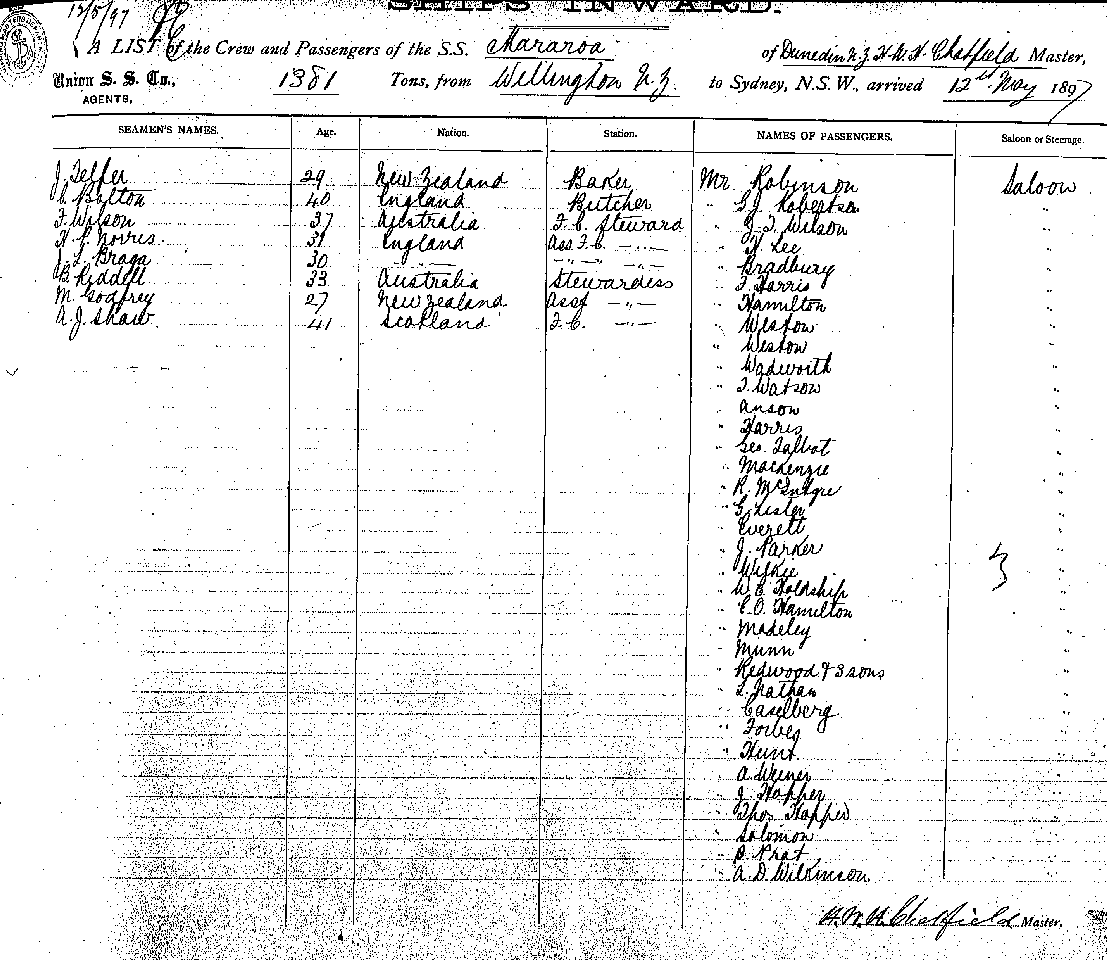 SHIPS INWARD.
12/5/97
A LIST of the Crew and Passengers of the S.S. Mararoa of Dunedin N.Z. H.W.H. Chatfield Master,
Union S. S. Co., 1381 Tons, from Wellington N.Z. to Sydney, N.S.W., arrived 12st May 1897
AGENTS,
SEAMEN'S NAMES. Age. Nation. Station. NAMES OF PASSENGERS. Saloon or Steerage.
J. Telfer 29 New Zealand Baker Mr Robinson Saloon
C. Bolton 40 England Butcher " G. J. Robertson "
F. Wilson 37 Australia F.C. Steward " J. T. Wilson "
H. P. Norris 31 England Ass F.C. —"— " H. Lee "
J. L. Braga 30 —"— —"— —"— " Bradbury "
B. Riddell 33 Australia Stewardess " F. Harris "
M. Godfrey 27 New Zealand Asst —"— " Hamilton "
A. J. Shaw 41 Scotland F.C. —"— " Weston "
" Weston "
" Wadworth "
" T. Watson "
" Anson "
" Harris "
" Geo. Talbot "
" Mackenzie "
" R. McIntyre "
" G. Lister "
" Everett "
" J. Parker "
" Wilkie "
" W. E. Holdship "
" C. O. Hamilton "
" Madeley "
" Munn "
" Redwood & 3 sons "
" L. Nathan "
" Caselberg "
" Forbes "
" Hunt "
" A. Weiner "
" J. Happer "
" Thos Happer "
" Solomon "
" B. Prat "
" A. D. Wilkinson "
H. W. H. Chatfield Master.